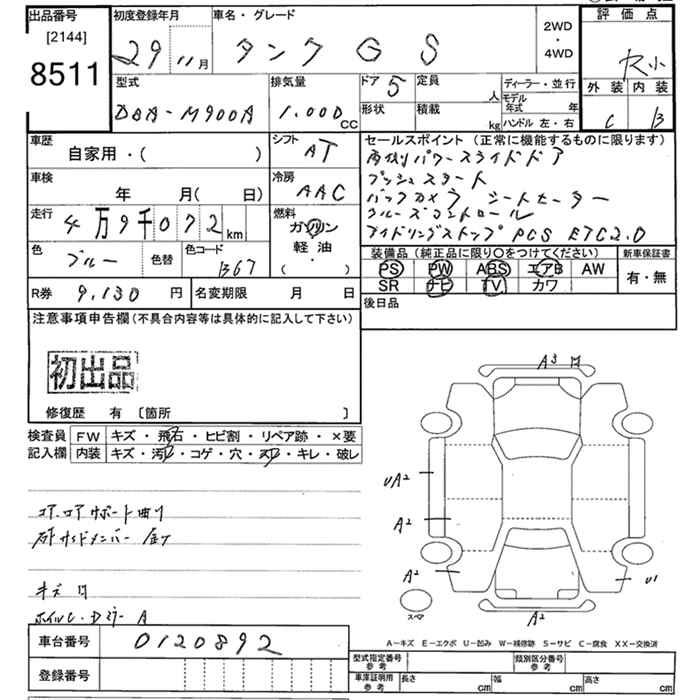 出品番号
[2144]
8511
初度登録年月
29 11月
車名・グレード
タンク G S
2WD
・
4WD
評価点
R小
外装 内装
C B
型式
DBA-M900A
排気量
1.000 CC
ドア 5
形状
定員 人
積載 kg
ディーラー・並行
モデル年式 年
ハンドル 左・右
車歴
自家用・( )
シフト
AT
車検
年 月( 日)
冷房
AAC
走行
4万9千072km
燃料
ガソリン
軽油
・
( )
色
ブルー
色替
色コード
B67
R券 9,130 円
名変期限 月 日
セールスポイント (正常に機能するものに限ります)
両側パワースライドドア
プッシュスタート
バックカメラ シートヒーター
クルーズコントロール
アイドリングストップ PCS ETC2.0
装備品 (純正品に限り○をつけてください)
PS PW ABS エアB AW
SR ナビ TV カワ
新車保証書
有・無
後日品
注意事項申告欄(不具合内容等は具体的に記入して下さい)
初出品
修復歴 有 〔箇所 〕
検査員
記入欄
FW キズ・飛石・ヒビ割・リペア跡・×要
内装 キズ・汚レ・コゲ・穴・スレ・キレ・破レ
コアロアサポート曲り
右サイドメンバー
キズ 凹
ホイルC・Dミラー A
A3 凹
UA2
A2
A2
A2
U1
スペア
A−キズ E−エクボ U−凹み W−補修跡 S−サビ C−腐食 XX−交換済
車台番号 0120892
登録番号
型式指定番号
参考
類別区分番号
参考
車庫証明用
参考
長さ cm 幅 cm 高さ cm